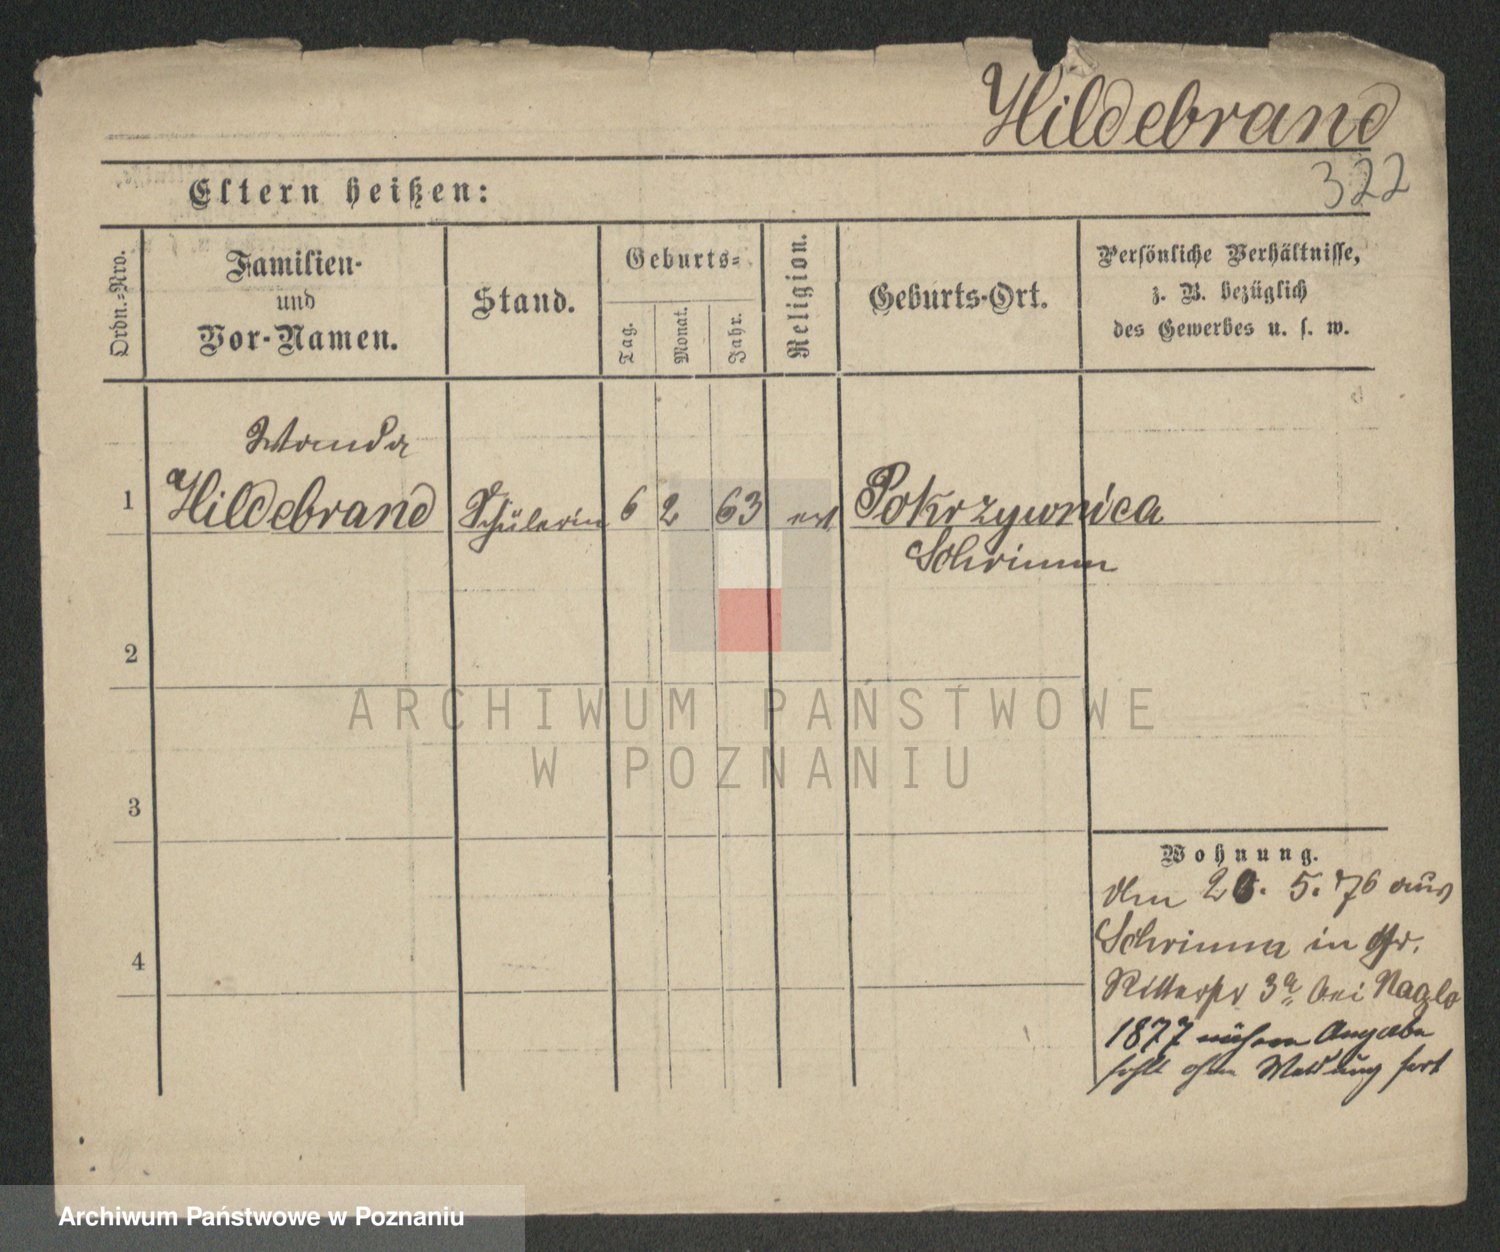 Hildebrand
322
Eltern heißen:
Ordn.-Nro.
Familien-
und
Vor-Namen.
Stand.
Geburts-
Tag.
Monat.
Jahr.
Religion.
Geburts-Ort.
Persönliche Verhältnisse,
z. B. bezüglich
des Gewerbes u. s. w.
Wanda
1 Hildebrand Schülerin 6 2 63 Pokrzywnica
Schrimm
2
3
4
Wohnung.
den 26. 5. 76 aus
Schrimm in Gr.
Ritterstr 3a bei Naglo
1877 Angabe
fehlt ohne Meldung fort
ARCHIWUM PAŃSTWOWE
W POZNANIU
Archiwum Państwowe w Poznaniu